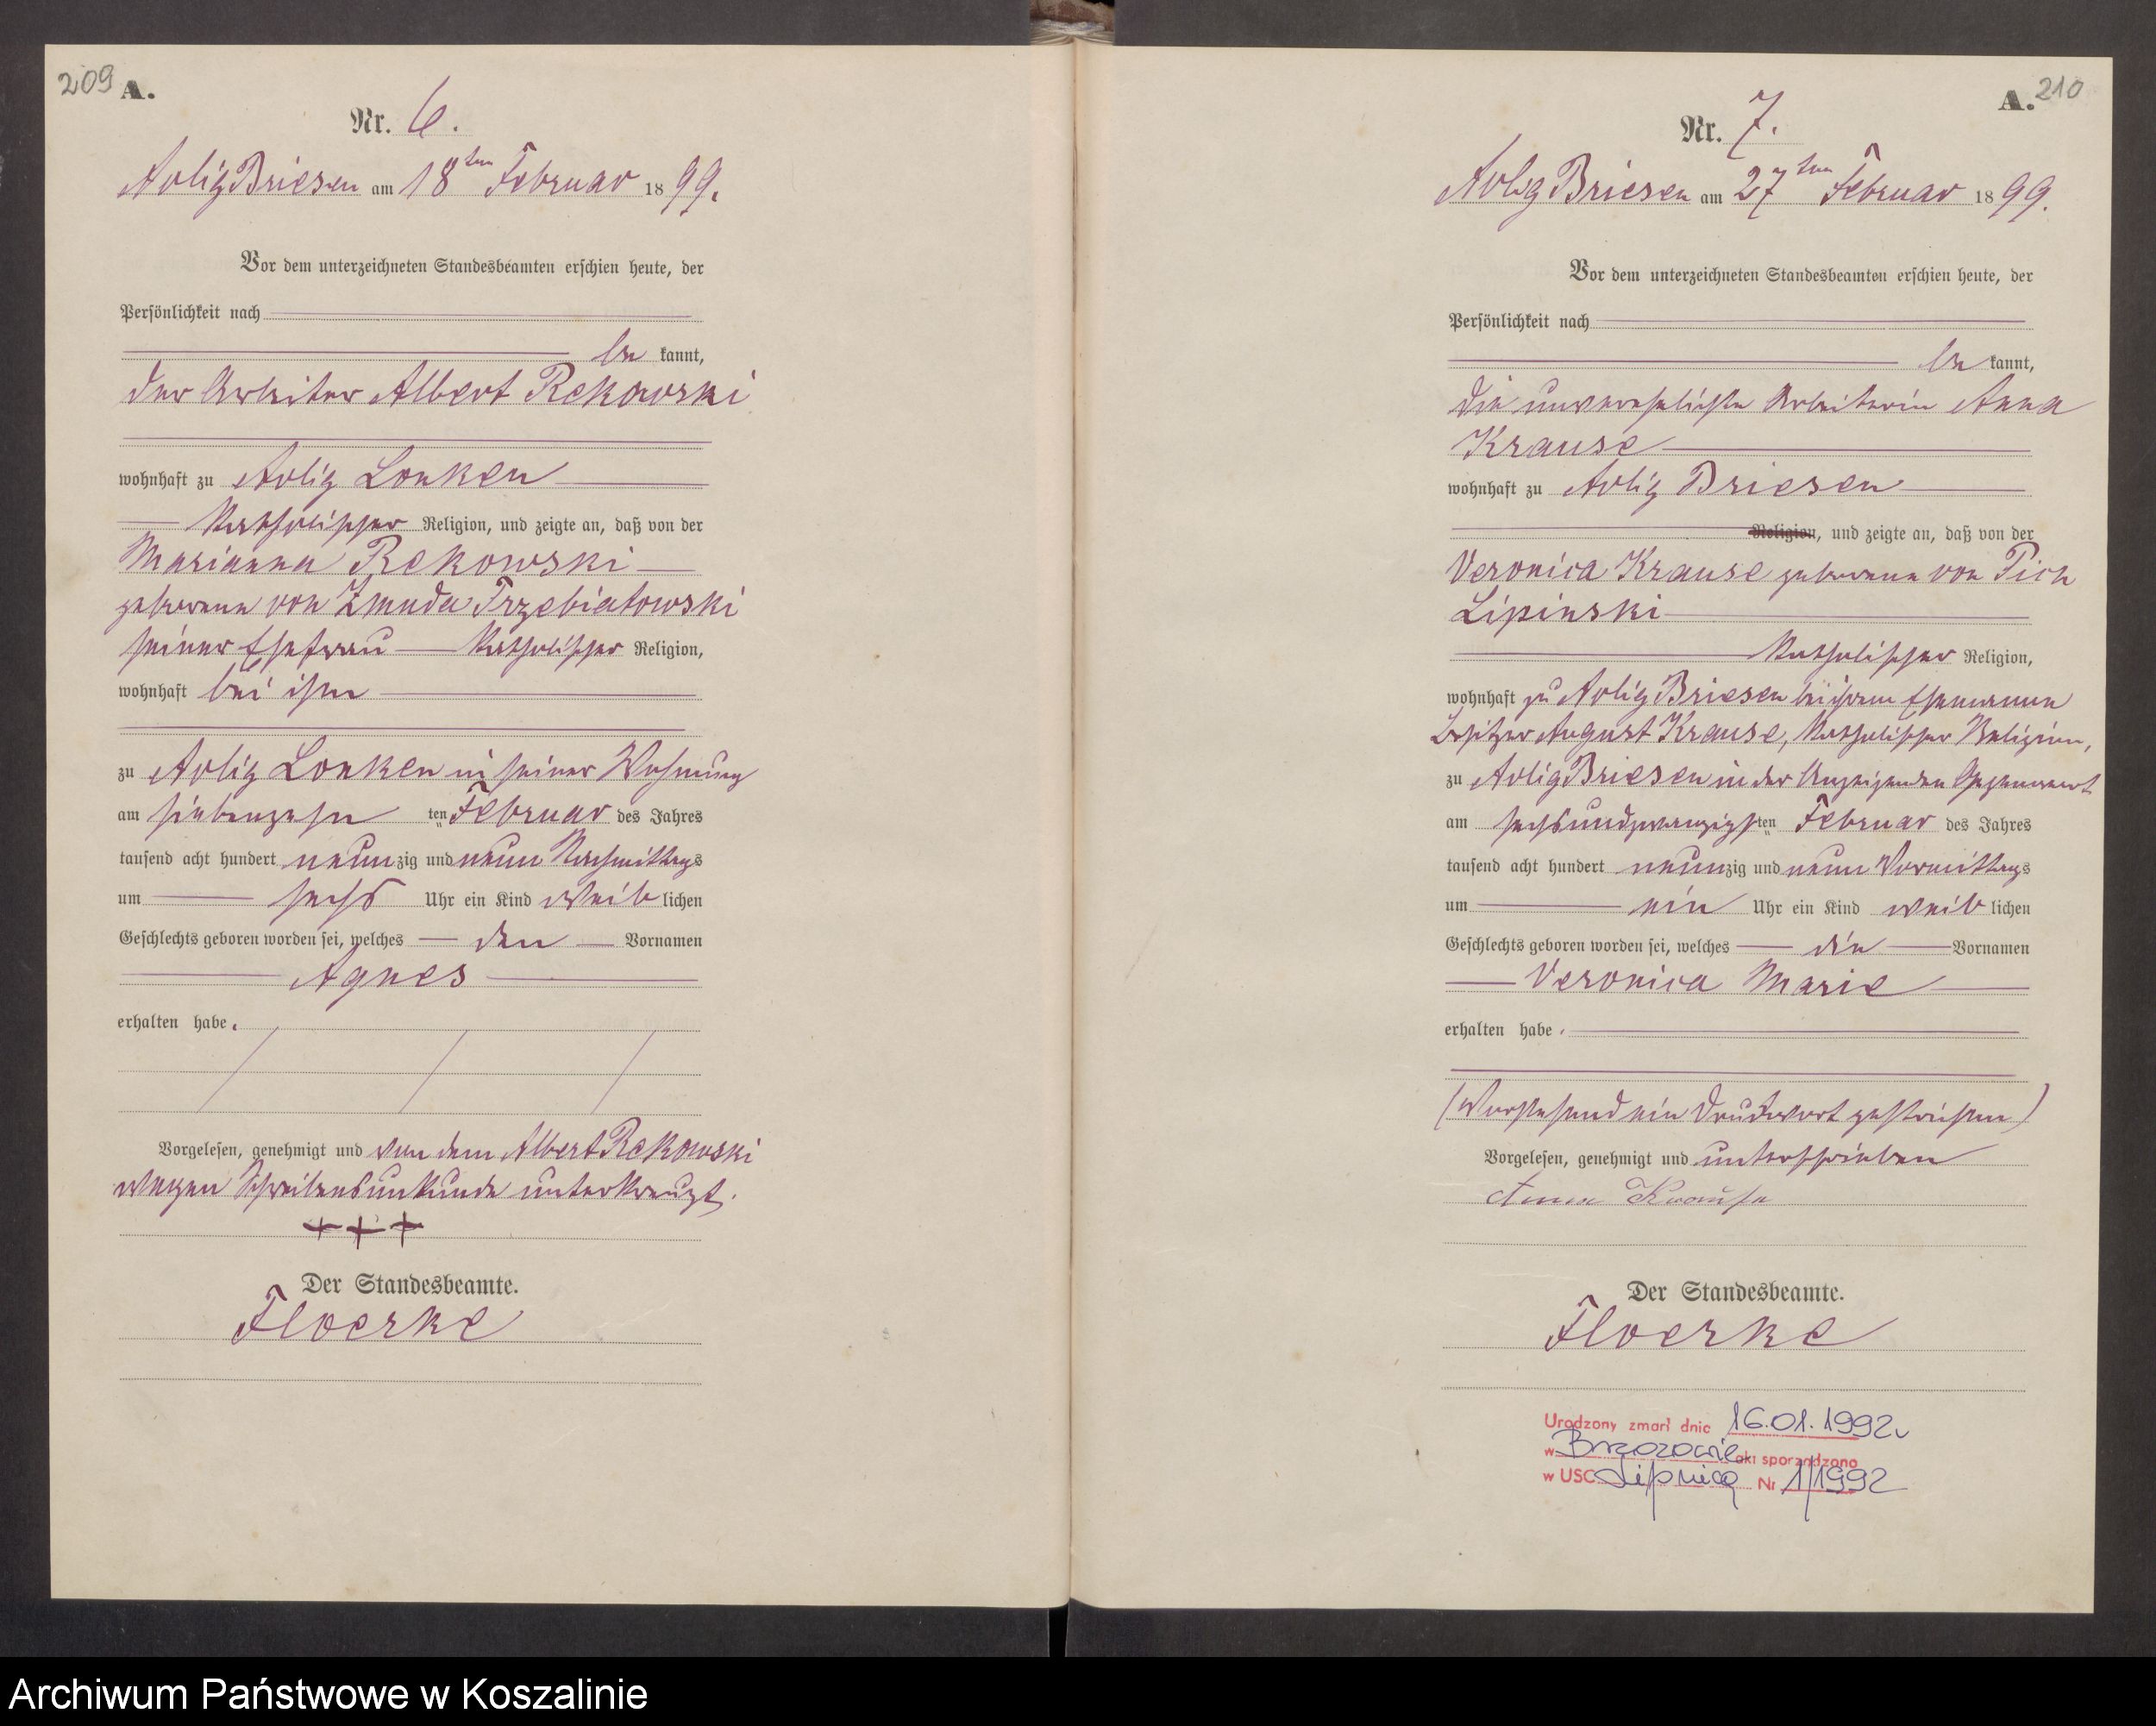 209 A.
Nr. 6.
Adlig Briesen am 18ten Februar 1899.
Vor dem unterzeichneten Standesbeamten erschien heute, der
Persönlichkeit nach
be kannt,
der Arbeiter Albert Rekowski
wohnhaft zu Adlig Lonken
katholischer Religion, und zeigte an, daß von der
Marianna Rekowski
geborene von Zmuda Trzebiatowski
seiner Ehefrau katholischer Religion,
wohnhaft bei ihm
zu Adlig Lonken in seiner Wohnung
am siebenzehn ten Februar des Jahres
tausend acht hundert neunzig und neun Nachmittags
um sechs Uhr ein Kind weiblichen
Geschlechts geboren worden sei, welches den Vornamen
Agnes
erhalten habe.
Vorgelesen, genehmigt und von dem Albert Rekowski
wegen Schreibensunkunde unterkreuzt.
+++
Der Standesbeamte.
Floerke
A. 210
Nr. 7.
Adlg Briesen am 27ten Februar 1899.
Vor dem unterzeichneten Standesbeamten erschien heute, der
Persönlichkeit nach
be kannt,
die unverehelichte Arbeiterin Anna
Krause
wohnhaft zu Adlig Briesen
Religion, und zeigte an, daß von der
Veronica Krause geborene von Pich
Lipinski
katholischer Religion,
wohnhaft zu Adlig Briesen bei ihrem Ehemanne
Besitzer August Krause, katholischer Religion,
zu Adlig Briesen in der Anzeigenden Gegenwart
am sechsundzwanzigsten Februar des Jahres
tausend acht hundert neunzig und neun Vormittags
um ein Uhr ein Kind weiblichen
Geschlechts geboren worden sei, welches die Vornamen
Veronica Marie
erhalten habe.
(Vorstehend ein Druckwort gestrichen)
Vorgelesen, genehmigt und unterschrieben
Anna Krause
Der Standesbeamte.
Floerke
Urodzony zmarł dnia 16.01.1992r
w Brzozowie akt sporządzono
w USC Lipnica Nr 1/1992
Archiwum Państwowe w Koszalinie